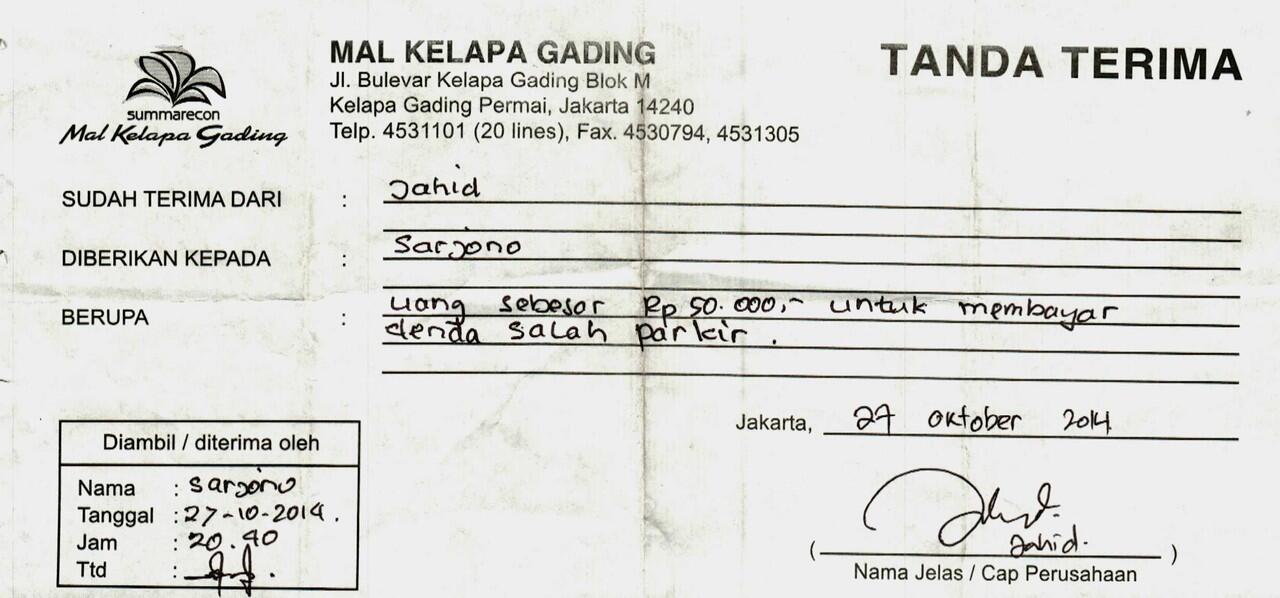 summarecon
Mal Kelapa Gading
MAL KELAPA GADING
Jl. Bulevar Kelapa Gading Blok M
Kelapa Gading Permai, Jakarta 14240
Telp. 4531101 (20 lines), Fax. 4530794, 4531305
TANDA TERIMA
SUDAH TERIMA DARI : Jahid
DIBERIKAN KEPADA : Sarjono
BERUPA : uang sebesar Rp 50.000,- untuk membayar
denda salah parkir.
Jakarta, 27 Oktober 2014
Diambil / diterima oleh
Nama : Sarjono
Tanggal : 27-10-2014.
Jam : 20.40
Ttd :
(Jahid.)
Nama Jelas / Cap Perusahaan